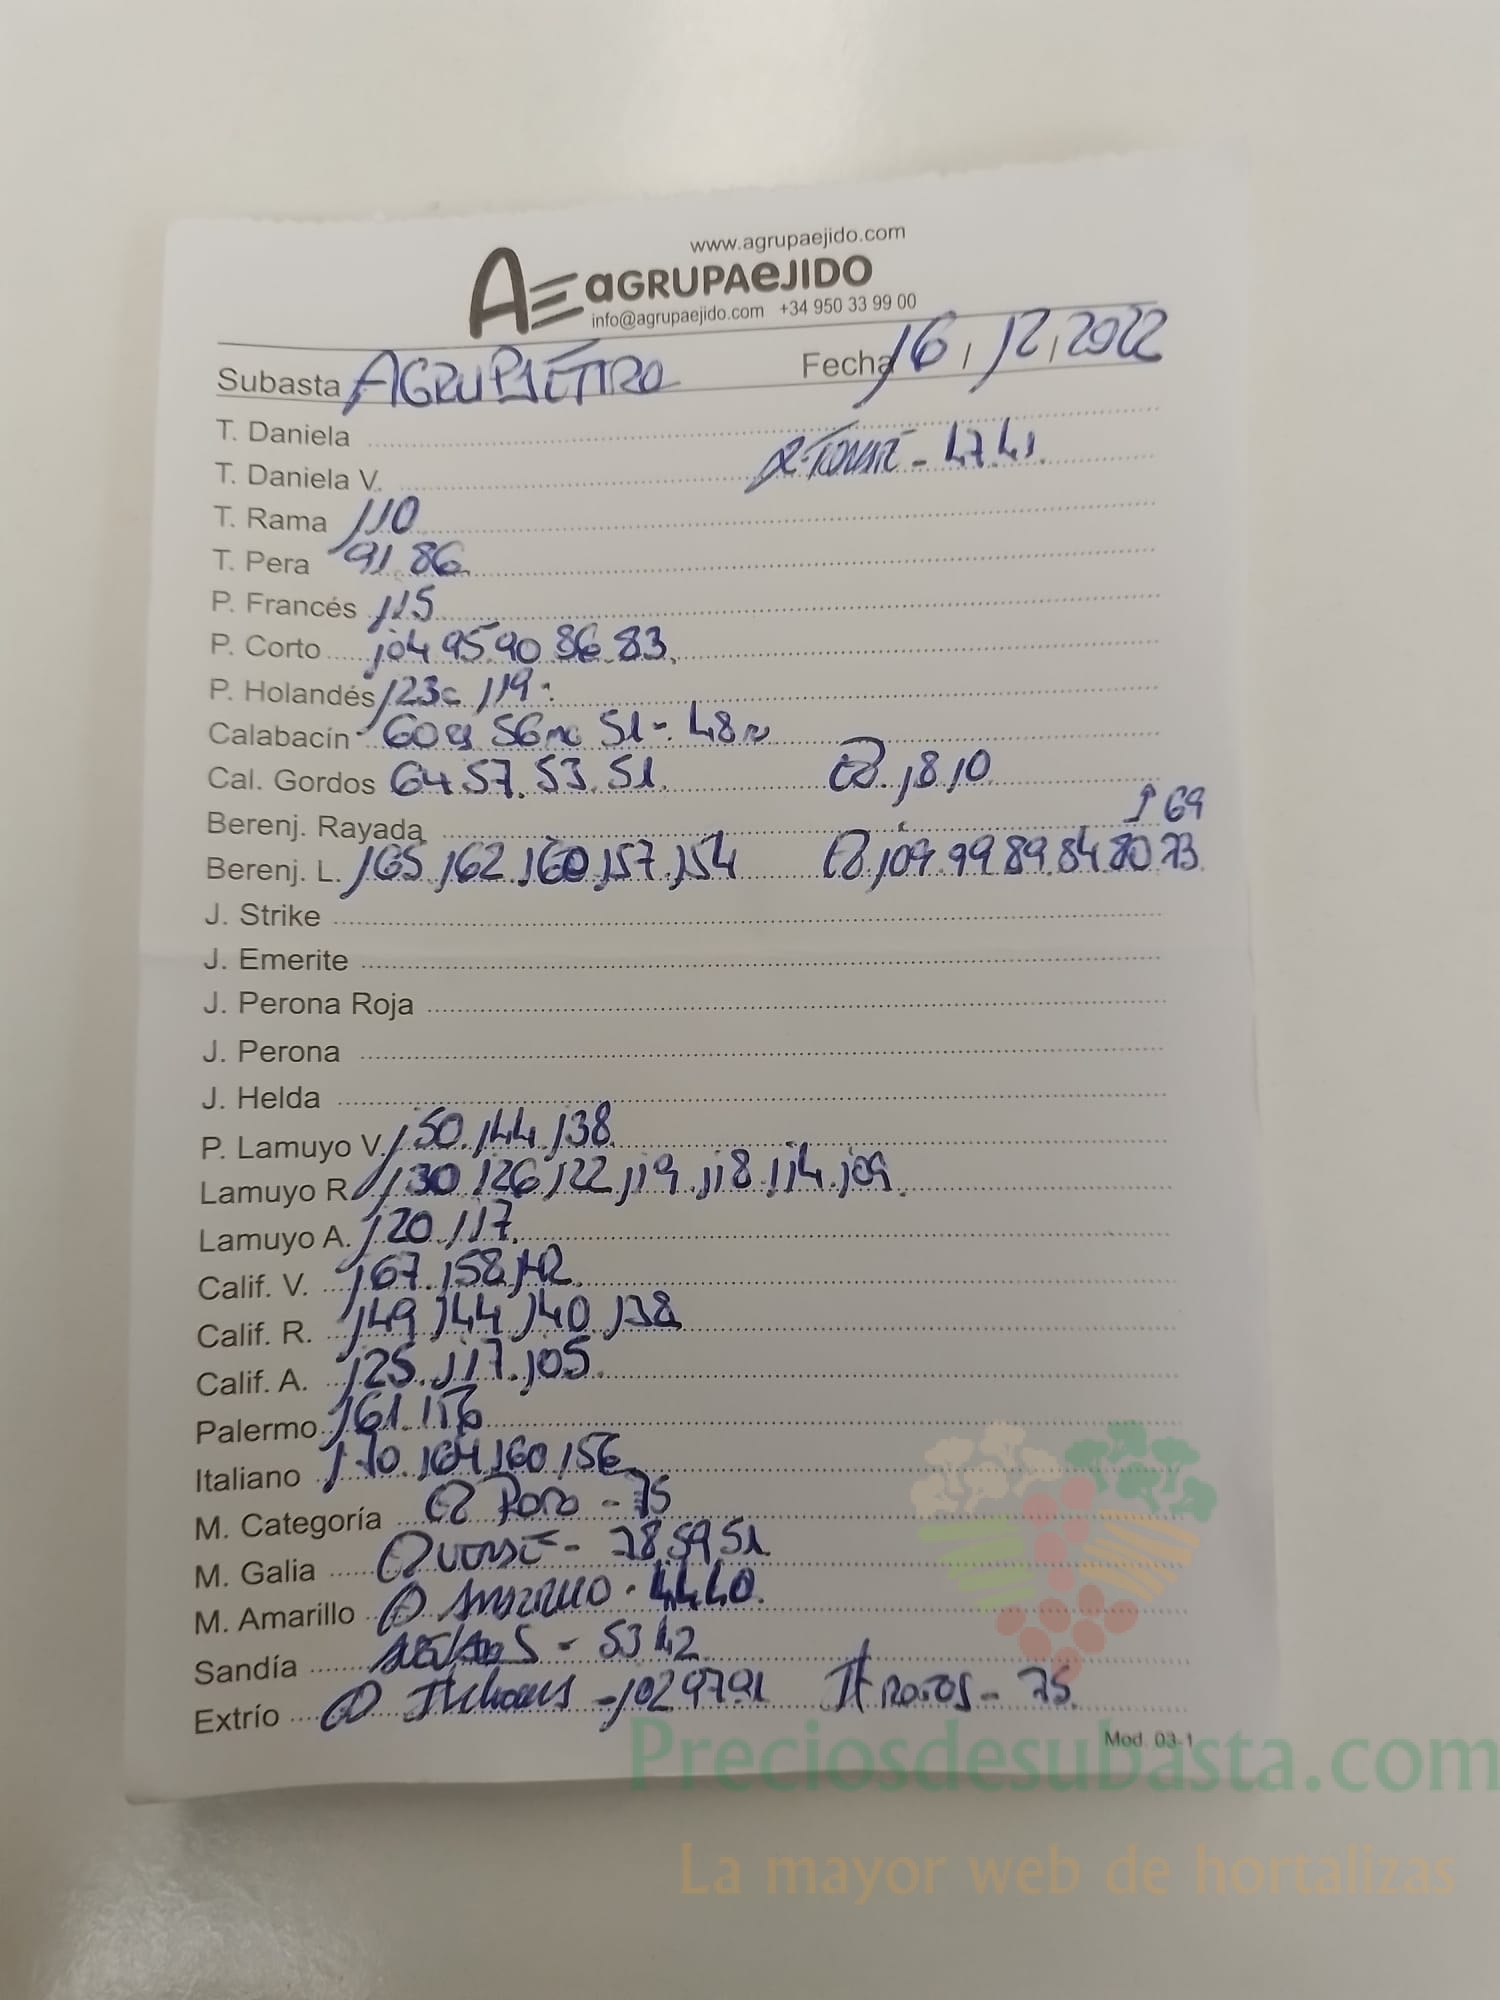 www.agrupaejido.com
AE aGRUPAeJIDO
info@agrupaejido.com +34 950 33 99 00
Subasta Fecha 16/12/2022
T. Daniela
T. Daniela V. - 47.41.
T. Rama 110
T. Pera 91.86
P. Francés 115
P. Corto 104 95 90 86 83.
P. Holandés 123 119
Calabacín 60 56 51 - 48
Cal. Gordos 64.57.53.51. 18.10
↑69
Berenj. Rayada
Berenj. L. 165.162.160.157.154 109.99 89.84 80 73
J. Strike
J. Emerite
J. Perona Roja
J. Perona
J. Helda
P. Lamuyo V. 150.144.138
Lamuyo R. 130 126 122 119.118.114.109.
Lamuyo A. 120.117.
Calif. V. 167.158.142
Calif. R. 149 144 140 138
Calif. A. 125.117.105.
Palermo 161.156
Italiano 170.164.160.156
M. Categoría - 75
M. Galia - 78 59 51
M. Amarillo 44.40.
Sandía - 53 42
Extrío - 102 97 91 - 75
Mod. 03-1
Preciosdesubasta.com
La mayor web de hortalizas